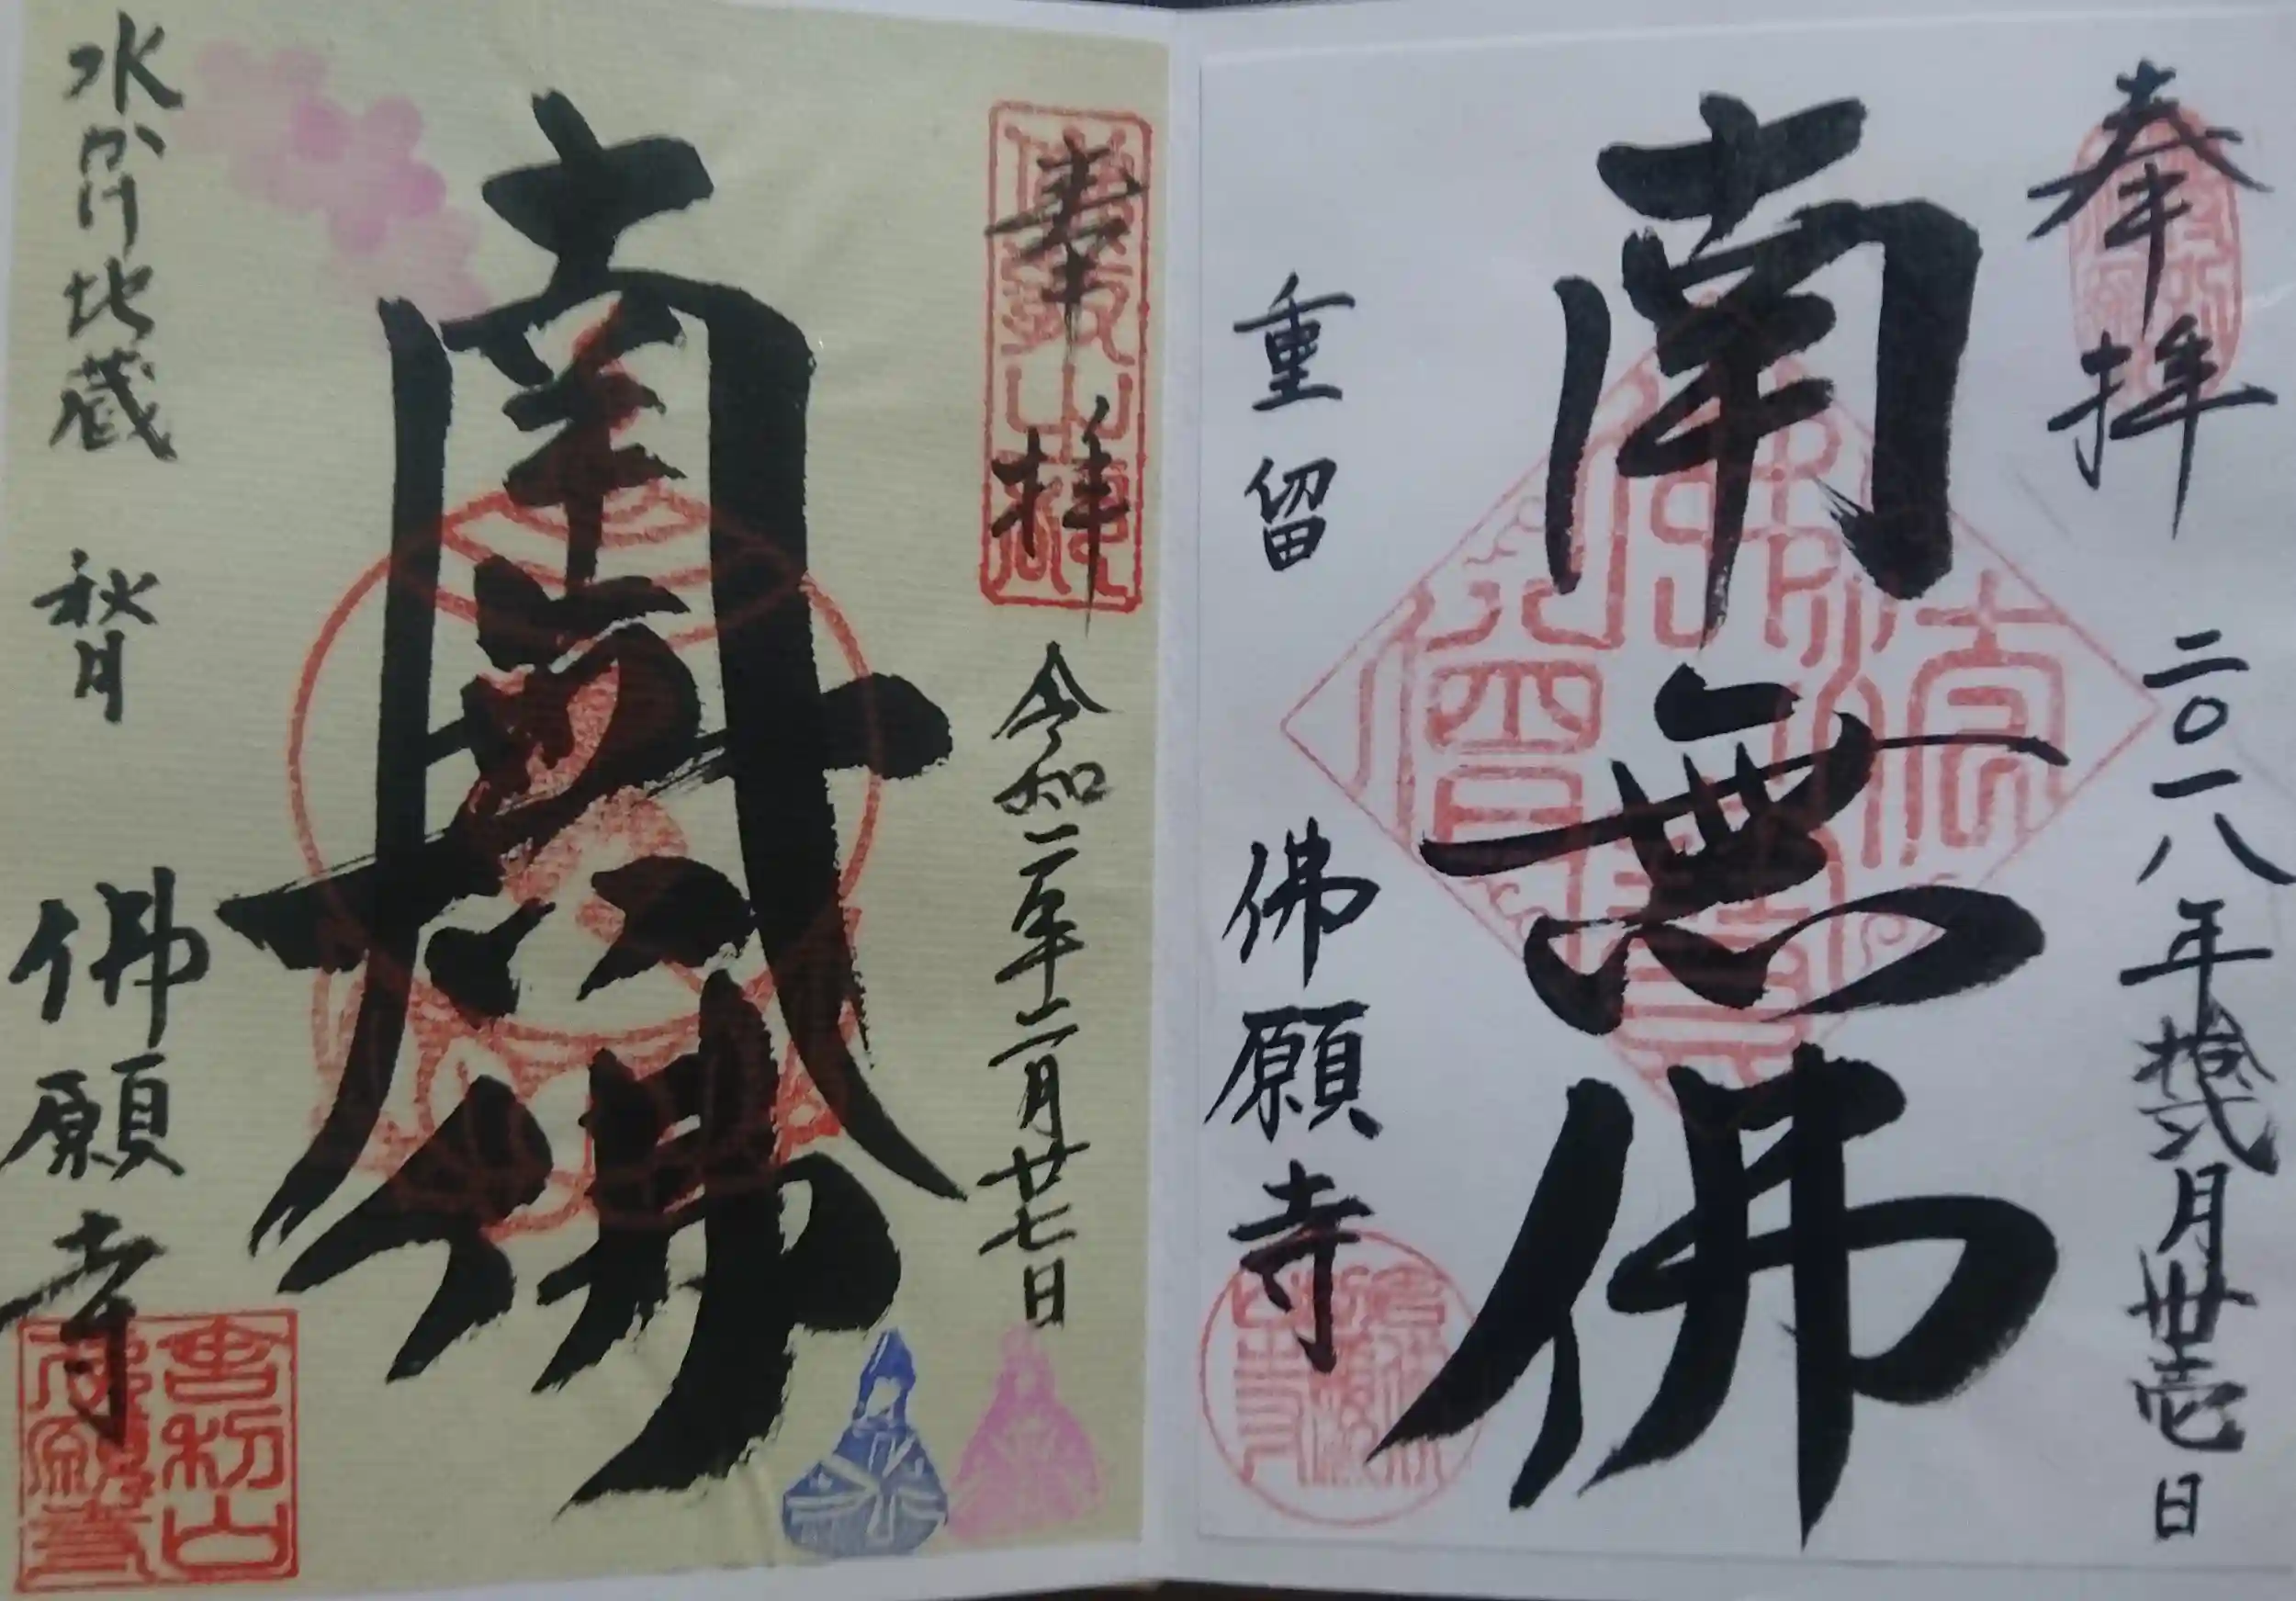 奉拝
二〇一八年拾弐月卅壱日
南無佛
重留
佛願寺
奉拝
令和二年十二月廿七日
南無佛
水かけ地蔵
秋月
佛願寺